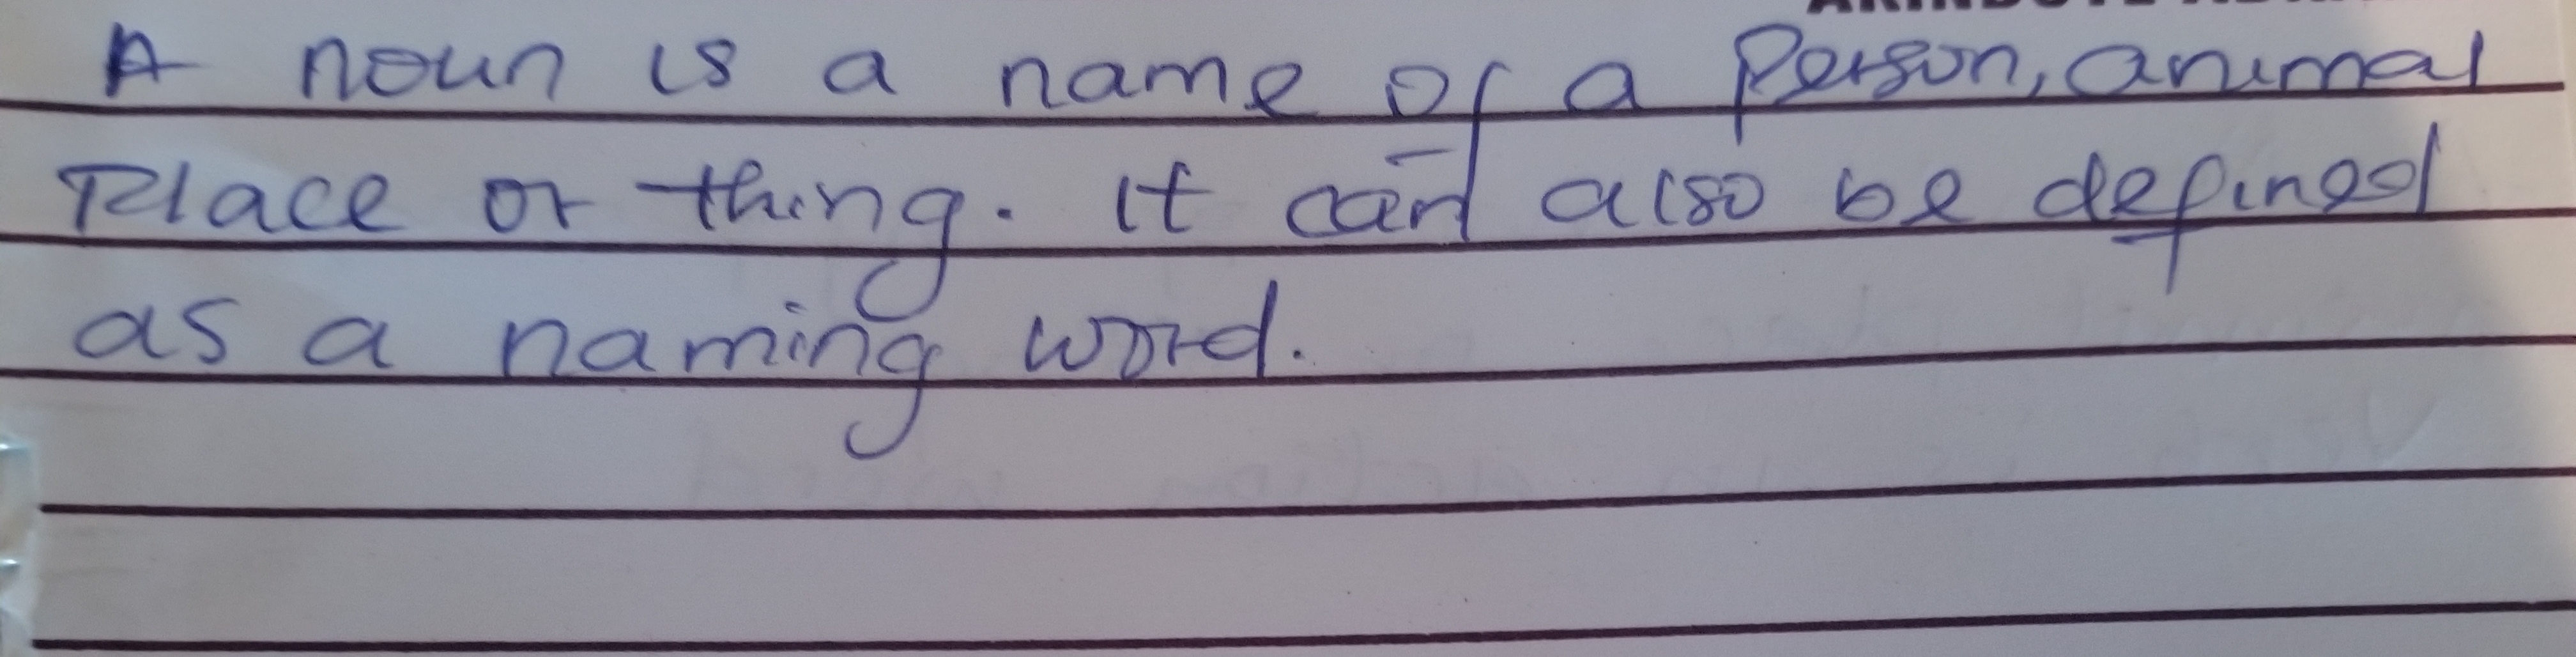 A noun is a name of a Person, animal
Place or thing. It can also be defined
as a naming word.